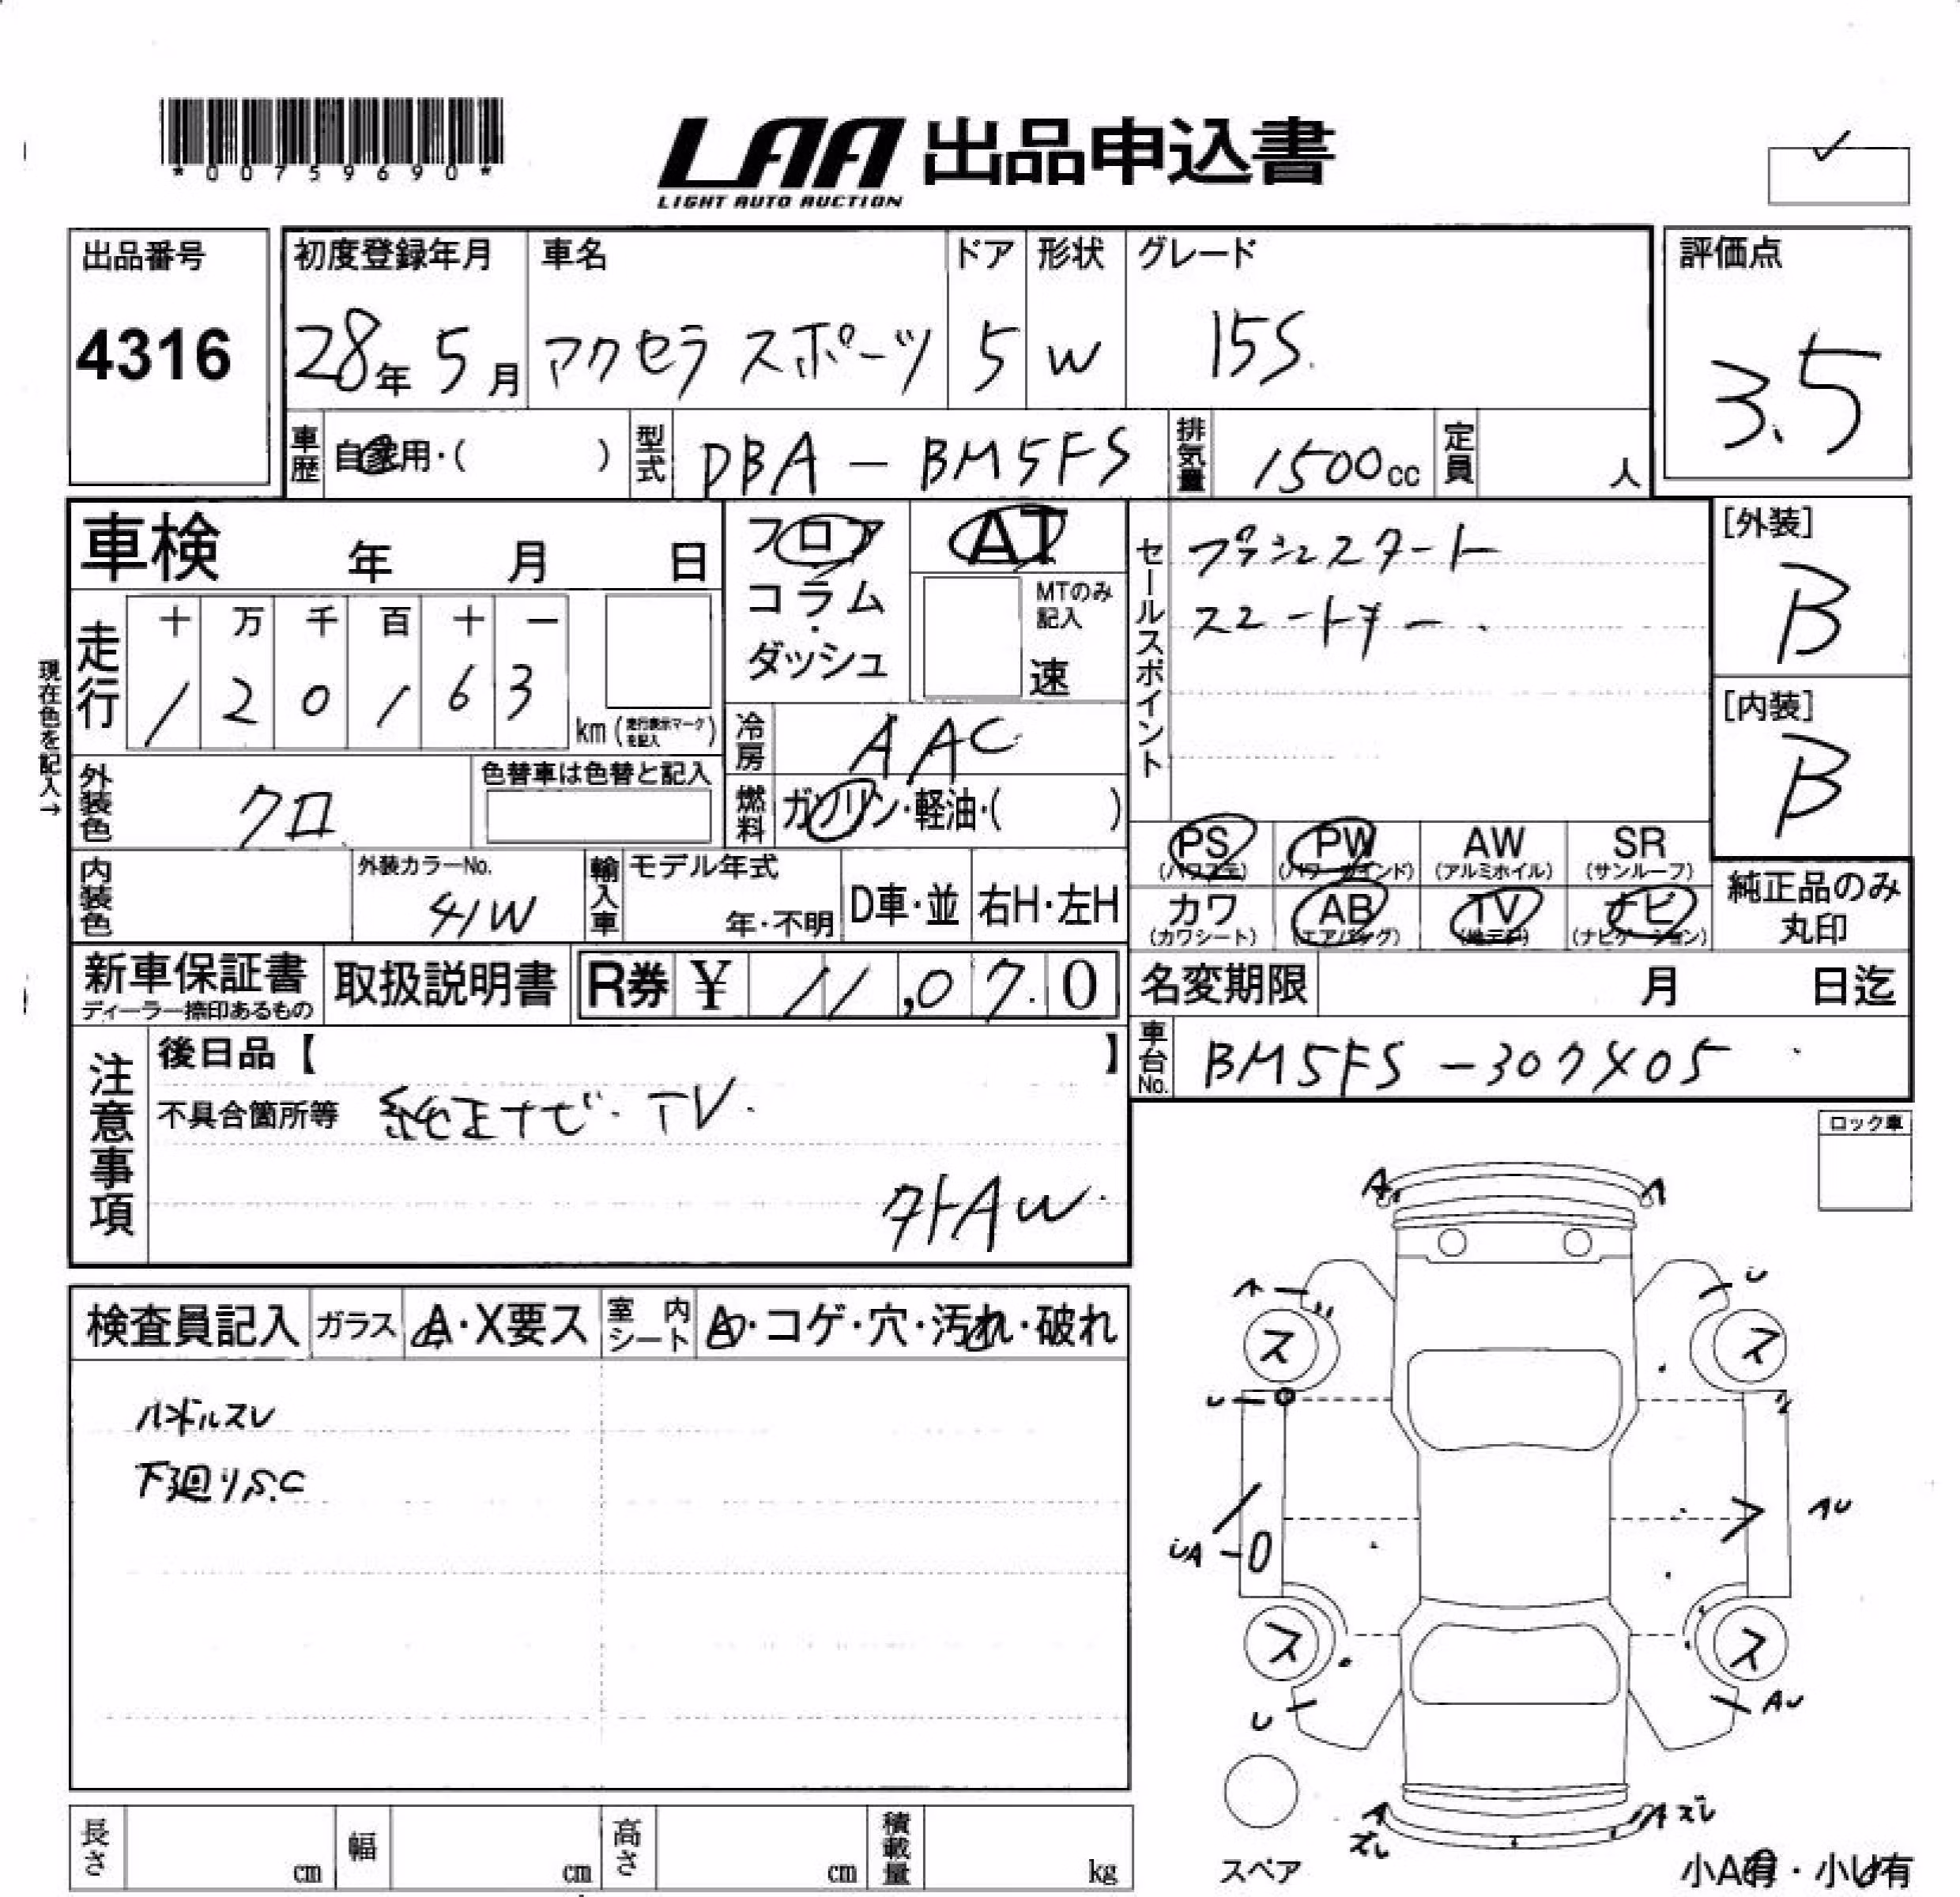 *00759690*
LAA 出品申込書
LIGHT AUTO AUCTION
出品番号
4316
初度登録年月
28年 5月
車名
アクセラ スポーツ
ドア
5
形状
W
グレード
15S.
評価点
3.5
車歴 自家用・( )
型式 DBA - BM5FS
排気量 1500cc
定員 人
車検 年 月 日
フロア
コラム
・
ダッシュ
AT
MTのみ
記入
速
セールスポイント
プッシュスタート
スマートキー.
[外装]
B
[内装]
B
現在色を記入→
走行
十 万 千 百 十 一
1 2 0 1 6 3
km (走行表示マークを記入)
冷房 AAC
外装色 クロ
色替車は色替と記入
燃料 ガソリン・軽油・( )
PS (パワステ)
PW (パワーウインド)
AW (アルミホイル)
SR (サンルーフ)
カワ (カワシート)
AB (エアバッグ)
TV (地デジ)
ナビ (ナビゲーション)
純正品のみ
丸印
内装色
外装カラーNo.
41W
輸入車
モデル年式
年・不明
D車・並
右H・左H
新車保証書
ディーラー捺印あるもの
取扱説明書
R券 ¥ 11,070
名変期限 月 日迄
車台No. BM5FS -307405
注意事項
後日品【 】
不具合箇所等 純正ナビ・TV.
外AW.
ロック車
検査員記入
ガラス A・X要ス
室内シート A・コゲ・穴・汚れ・破れ
ハンドルスレ
下廻りS.C
A
A
U
ス
ス
U
UA
AU
ス
ス
U
AU
A
ズレ
A ズレ
スペア
小A有・小U有
長さ cm
幅 cm
高さ cm
積載量 kg